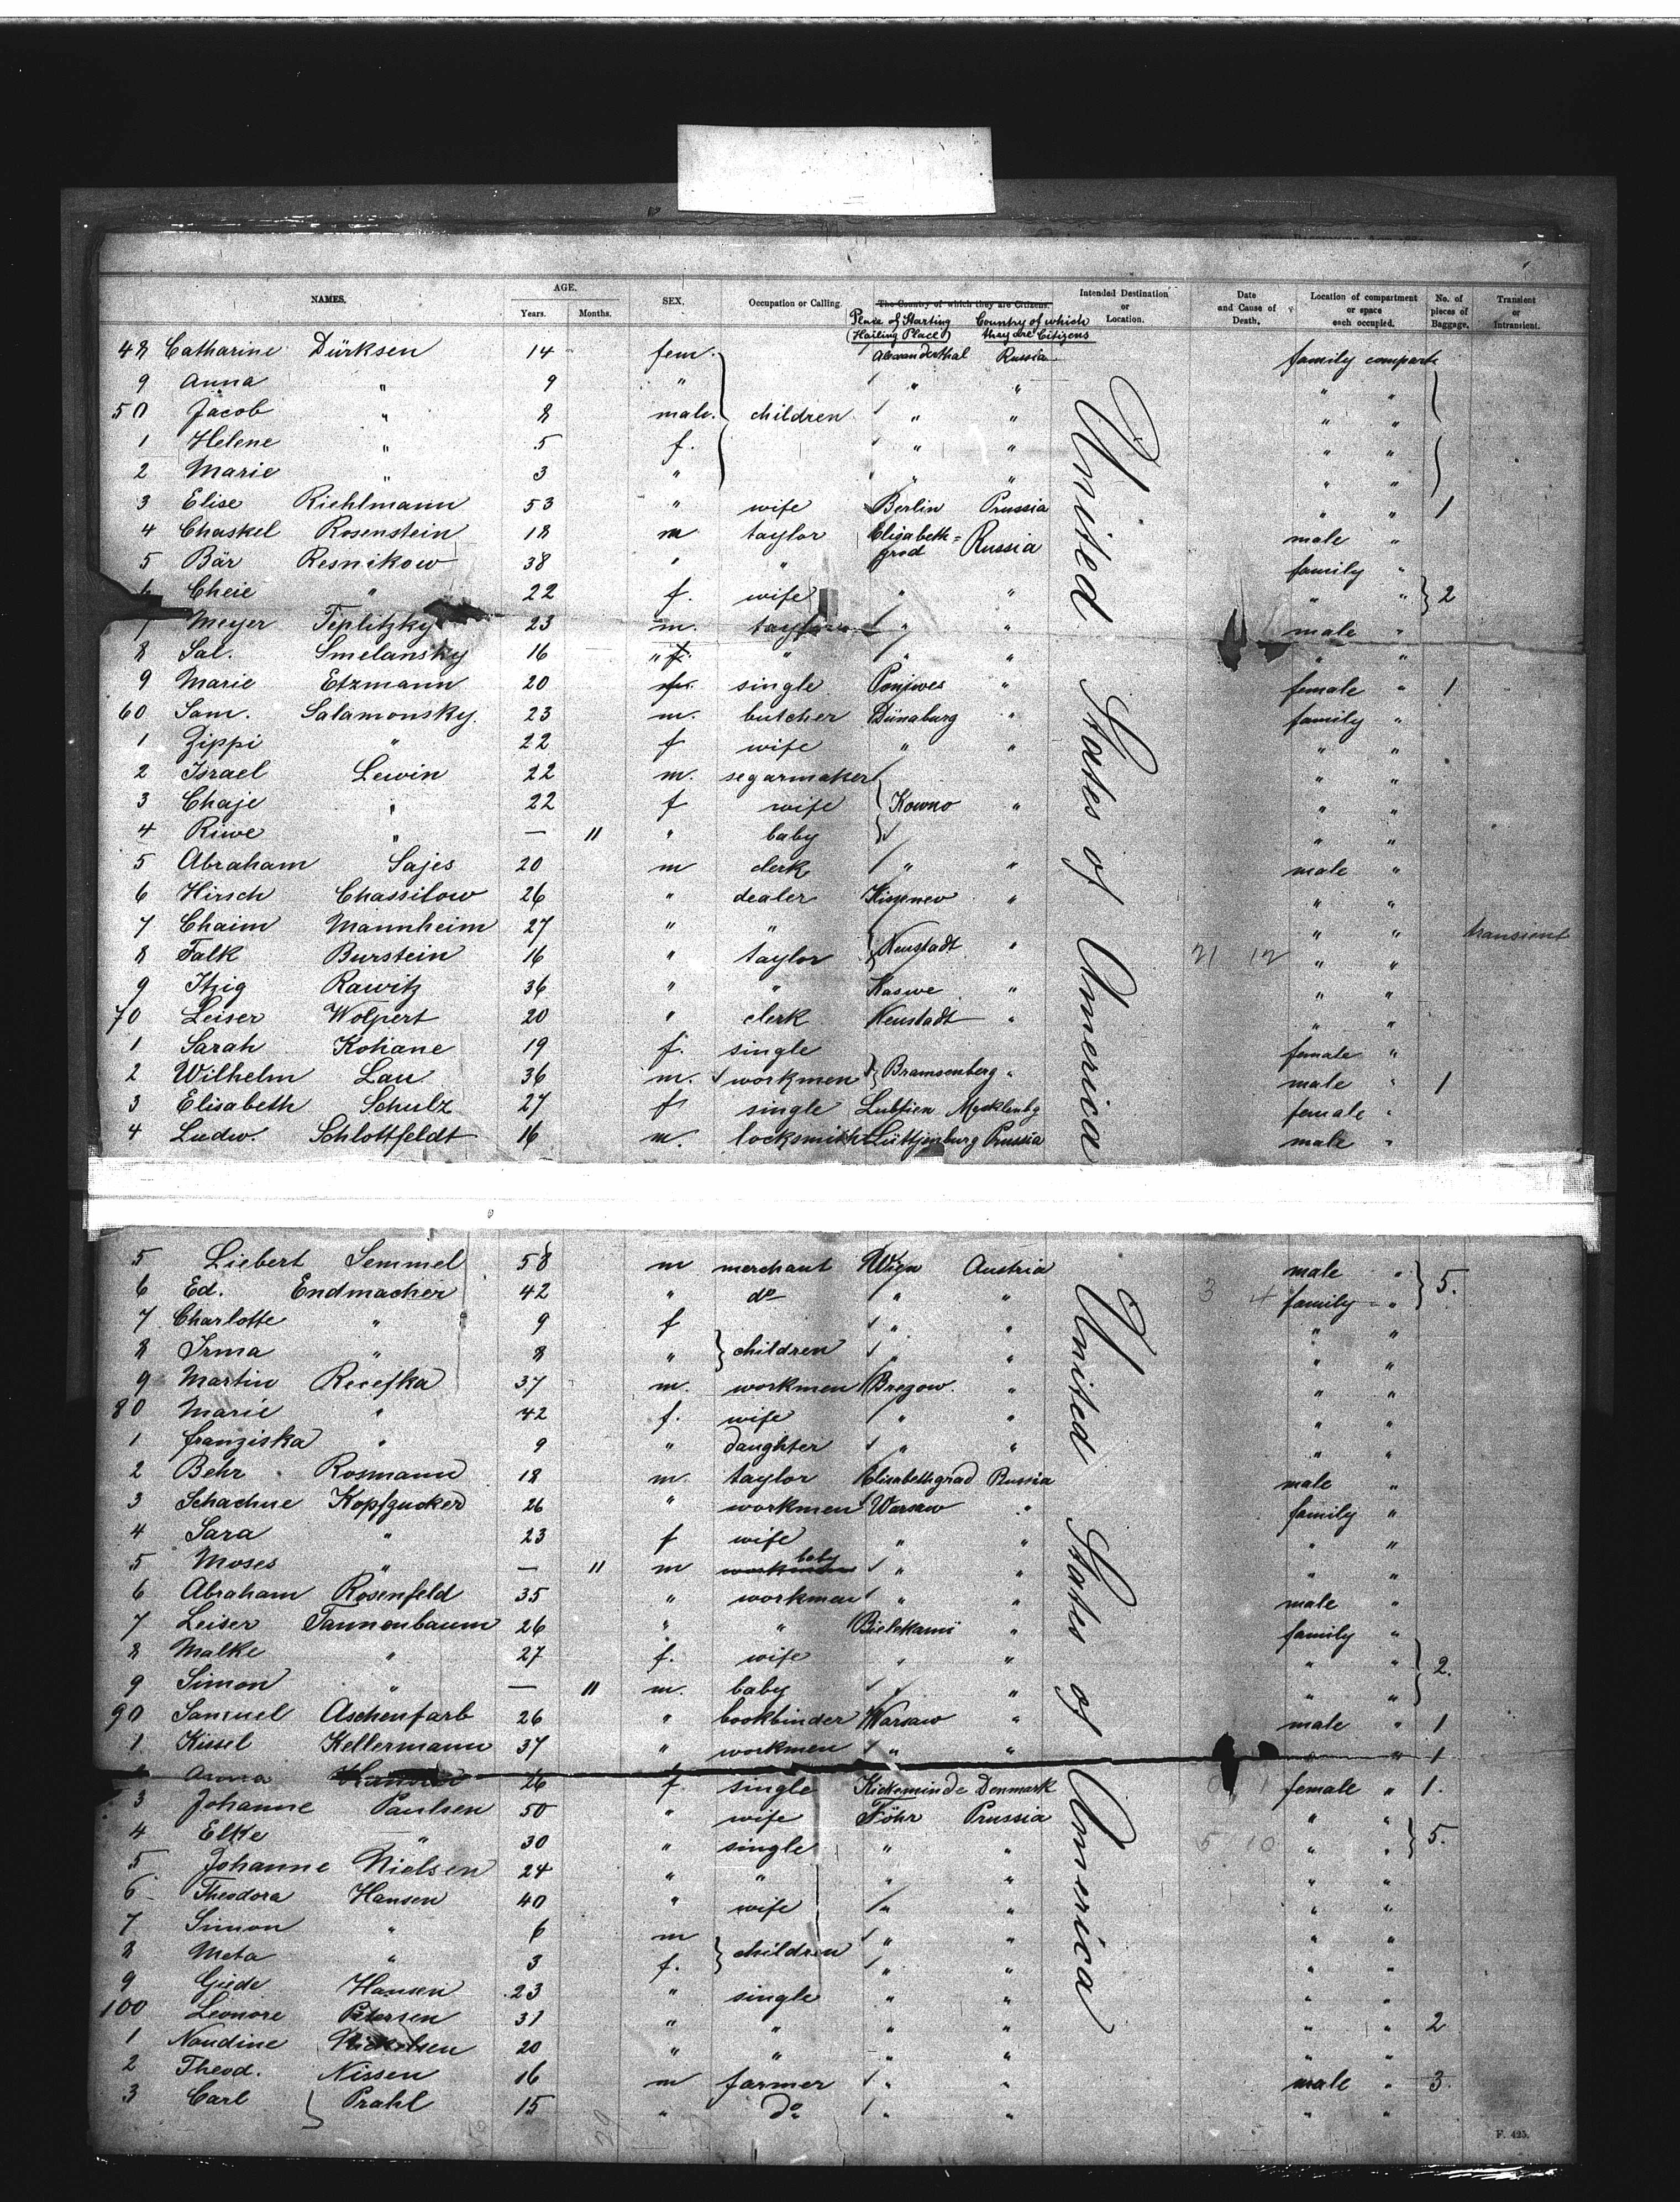 NAMES. AGE. Years. Months. SEX. Occupation or Calling. The Country of which they are Citizens. Intended Destination or Location. Date and Cause of Death. Location of compartment or space each occupied. No. of pieces of Baggage. Transient or Intransient.
Place of Starting (Hailing Place) Country of which they are Citizens
48 Catharine Dürksen 14 fem. Alexanderthal Russia family compart.
9 Anna " 9 " " " " "
50 Jacob " 8 male. children " " " "
1 Helene " 5 f. " " " "
2 Marie " 3 " " " " "
3 Elise Riehlmann 53 " wife Berlin Prussia " " 1
4 Chaskel Rosenstein 18 m taylor Elisabeth=grad Russia male "
5 Bär Resnikow 38 " " family "
6 Cheie " 22 f. wife " " " " 2
7 Meyer Teplitzky 23 m. " " male "
8 Sal. Smelansky 16 " " " " " "
9 Marie Etzmann 20 single Ponjwes " female " 1
60 Sam. Salamonsky. 23 m. butcher Dünaburg " family "
1 Zippi " 22 f wife " " " "
2 Israel Lewin 22 m. segarmaker " "
3 Chaje " 22 f wife Kowno " " "
4 Riwe " — 11 " baby " "
5 Abraham Sajes 20 m clerk " " male "
6 Hirsch Chassilow 26 " dealer Kissenew " " "
7 Chaim Mannheim 27 " " " " transient
8 Falk Burstein 16 " taylor Neustadt " 21 12 " "
9 Itzig Rawitz 36 " " Kaswe " " "
70 Leiser Wolpert 20 " clerk Neustadt " " "
1 Sarah Kohane 19 f. single female "
2 Wilhelm Lau 36 m. workmen Bramsenberg " male " 1
3 Elisabeth Schulz 27 f single Mecklenbg female "
4 Ludw. Schlottfeldt 16 m. locksmith Lüttjenburg Prussia male "
United States of America
5 Liebert Semmel 58 m merchant Wien Austria male " 5.
6 Ed. Endmacher 42 " do " " 3 4 family "
7 Charlotte " 9 f " " " "
8 Irma " 8 " children " " " "
9 Martin Recefka 37 m. workmen Bregow. " " "
80 Marie " 42 f. wife " " " "
1 Franziska " 9 " daughter " " " "
2 Behr Rosmann 18 m. taylor Elisabethgrad Russia male "
3 Schachne Kopfgucker 26 " workmen Warsaw " family "
4 Sara " 23 f wife " " " "
5 Moses " — 11 m baby " " " "
6 Abraham Rosenfeld 35 " workman " " male "
7 Leiser Tannenbaum 26 " " Bielskami " family "
8 Malke " 27 f. wife " " " " 2.
9 Simon " — 11 m. baby " " " "
90 Samuel Aschenfarb 26 " bookbinder Warsaw " male " 1
1 Kissel Kellermann 37 " workmen " " " " 1
Anna 26 f. single Kierteminde Denmark female " 1.
3 Johanne Paulsen 50 " wife Föhr Prussia " "
4 Elke " 30 " single " " 5 10 " " 5.
5 Johanne Nielsen 24 " " " " " "
6 Theodora Hansen 40 " wife " " " "
7 Simon " 6 m " " " "
8 Meta " 3 f. children " " " "
9 Giede Hansen 23 " single " " " "
100 Leonore Petersen 31 " " " " " " 2
1 Naudine Nickelsen 20 " " " " " "
2 Theod. Nissen 16 m farmer " " male " 3.
3 Carl Prahl 15 " do " " " "
United States of America
F. 425.